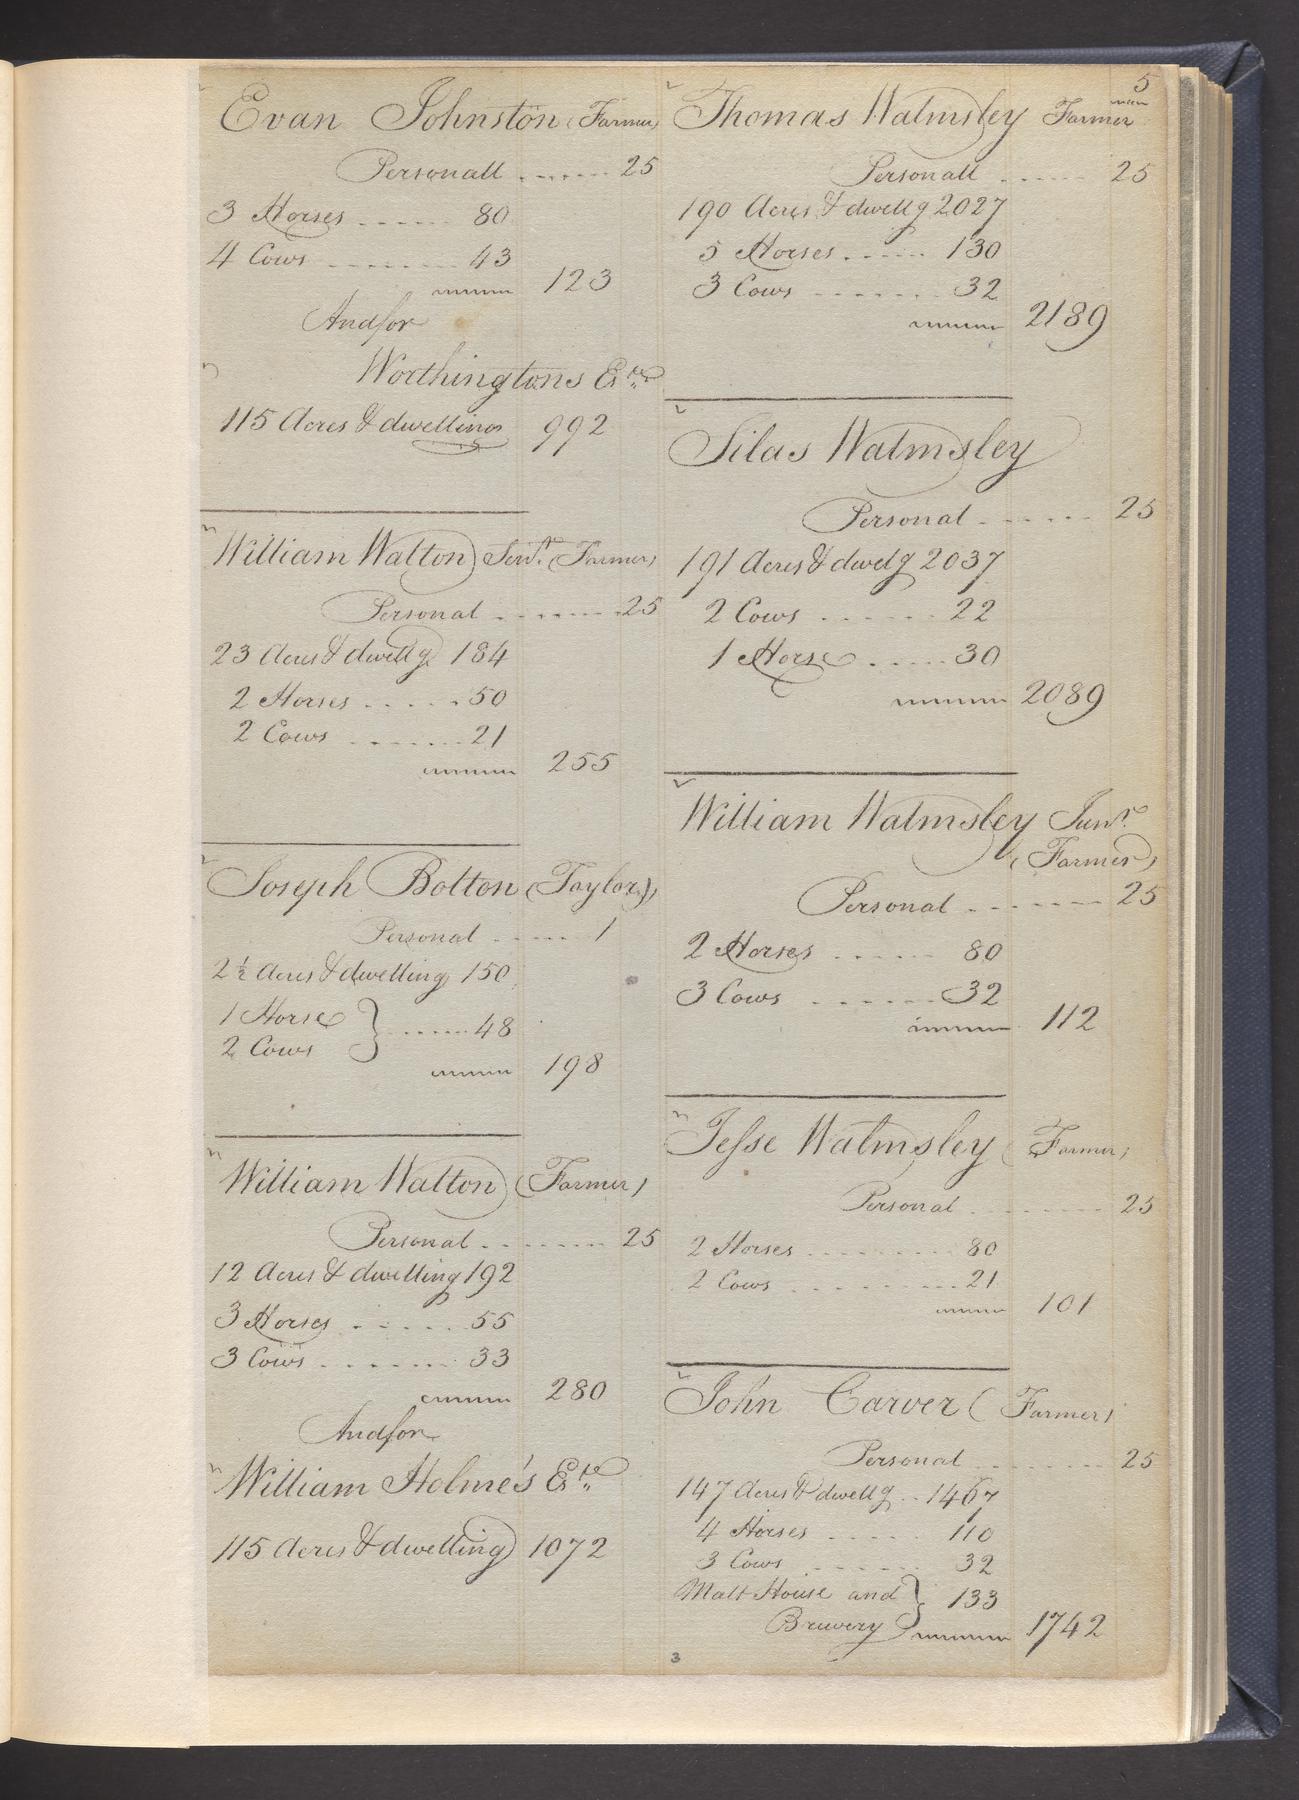 5
Evan Johnston (Farmer)
Personall ...... 25
3 Horses ...... 80
4 Cows ........ 43
123
And for
Worthingtons Este
115 Acres & dwelling 992
William Walton Senr. (Farmer)
Personal ........ 25
23 Acres & dwellg 184
2 Horses ..... 50
2 Cows ....... 21
255
Joseph Bolton (Taylor)
Personal ..... 1
2½ Acres & dwelling 150
1 Horse
2 Cows } ...... 48
198
William Walton (Farmer)
Personal ........ 25
12 Acres & dwelling 192
3 Horses ...... 55
3 Cows ....... 33
280
And for
William Holme's Este
115 Acres & dwelling 1072
Thomas Walmsley Farmer
Personall ..... 25
190 Acres & dwellg 2027
5 Horses ..... 130
3 Cows ....... 32
2189
Silas Walmsley
Personal ...... 25
191 Acres & dwelg 2037
2 Cows ...... 22
1 Horse ..... 30
2089
William Walmsley Junr.
(Farmer)
Personal ....... 25
2 Horses ...... 80
3 Cows ....... 32
112
Jesse Walmsley (Farmer)
Personal ........ 25
2 Horses ......... 80
2 Cows .......... 21
101
John Carver (Farmer)
Personal ........ 25
147 Acres & dwellg .. 1467
4 Horses ..... 110
3 Cows ...... 32
Malt House and
Brewery } 133
1742
3